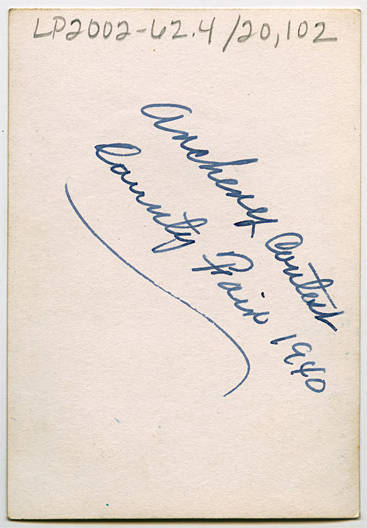 LP2002-62.4/20,102
Archery Contest
County Fair 1940